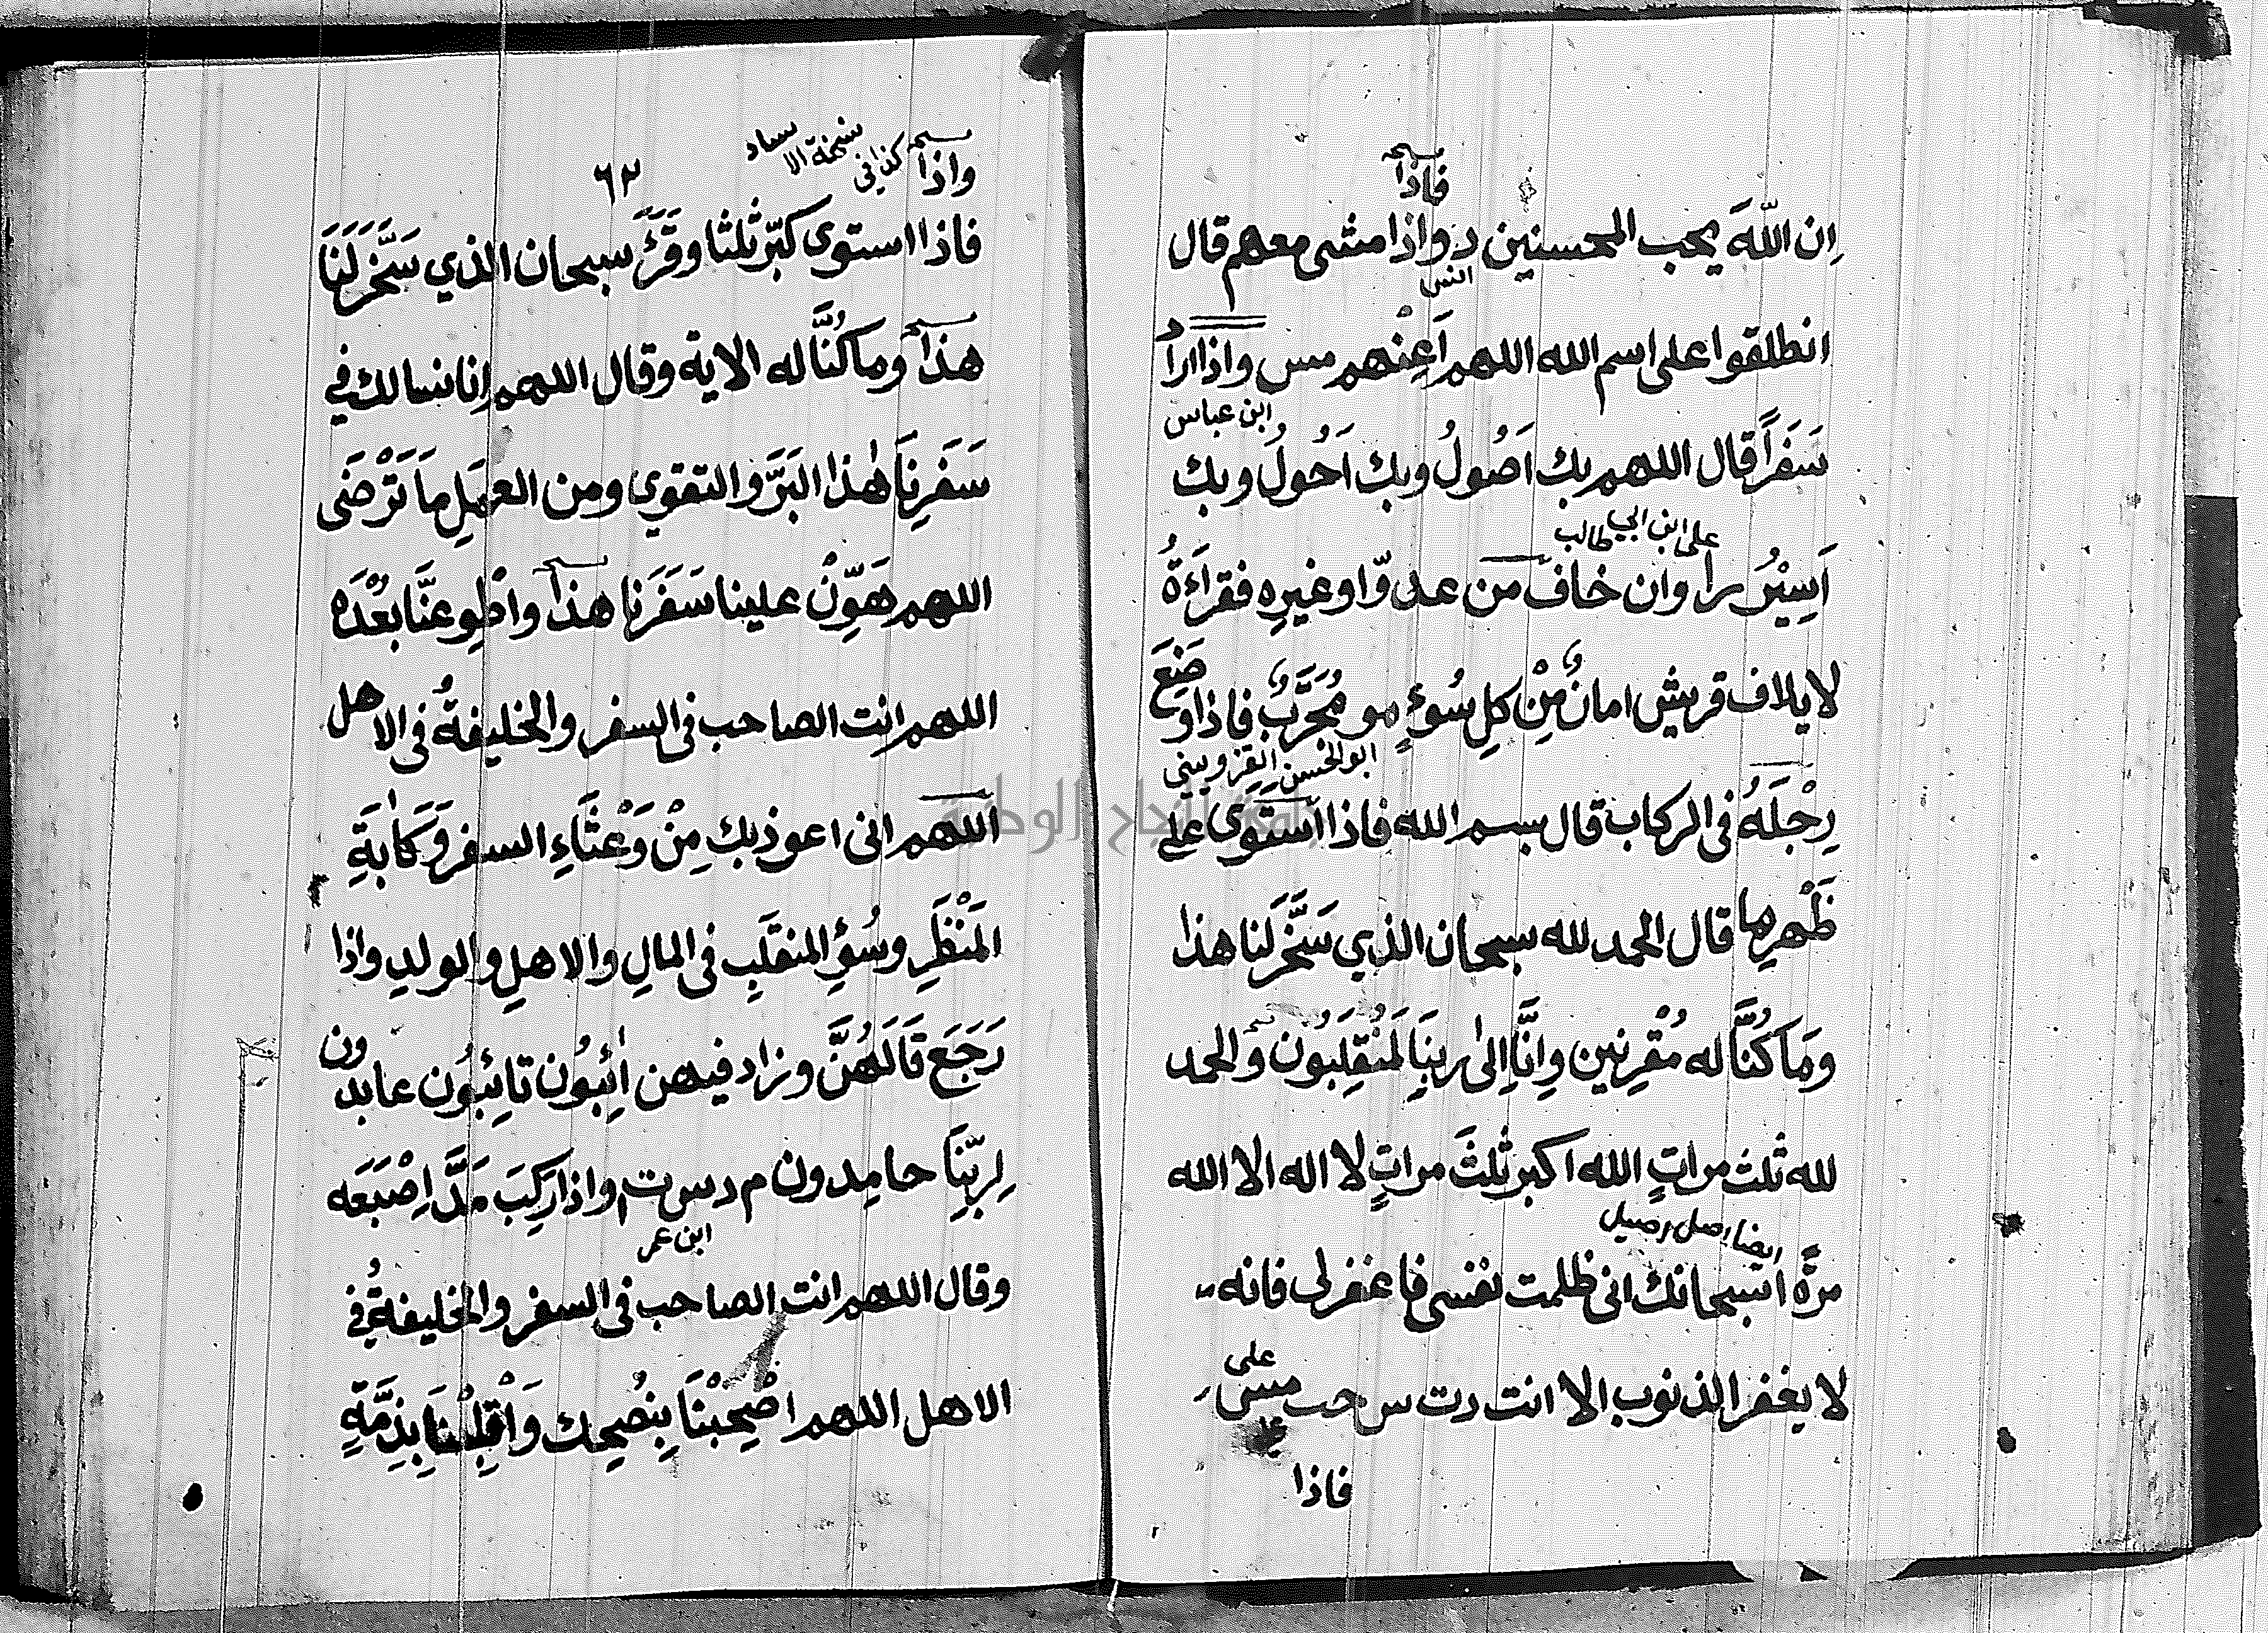 فاذا
اِن اللّٰهَ يحب المحسنين د واذا مشى معهم قال
انطلقوا على اسم الله اللهم اَعِنْهم مس واذا اراد
ابن عباس
سَفَراً قال اللهم بك اَصُولُ وبك اَحُولُ وبك
على ابن ابي طالب
اَسِيْرُ را وان خاف من عدوّ او غيرِه فقراَءَةُ
لايلاف قريش امانٌ مِّنْ كلِ سُوءٍ مو مُجَرَّبٌ فاذا وضَعَ
ابو الحسن القزويني
رِجْلَهُ فى الركاب قال بسم الله فاذا استَوَى على
ظَهْرِها قال الحمد لله سبحان الذي سَخَّرَ لَنا هذا
ومَا كُنَّا له مُقْرِنين وِانَّا اِلىٰ ربِنَا لَمُنْقَلِبُون والحمد
لله ثلث مراتٍ الله اكبر ثلثَ مراتٍ لا اله الا الله
ايضا
مرَّةً سبحانك انى ظلمت نفسى فاغفرلى فانه
على
لا يغفر الذنوب الا انت د ت س حب مس
فاذا
واذا كذا فى نسخة
٦٣
فاذا استوى كبّر ثلثا وقَرَٔ سبحان الذي سَخَّرَ لَنَا
هذا وما كُنَّا له الاية وقال اللهم اِنا نسالك في
سَفَرِنَا هٰذا البَرَّ والتقوي ومن العمَلِ مَا تَرْضَى
اللهم هَوِّنْ علينا سَفَرَنا هذا واطْوِ عنَّا بُعْدَه
اللهم انت الصاحب فى السفر والخليفةُ فى الاهل
اللهم انى اعوذ بك مِنْ وَعْثَاءِ السفر وَكَابَةِ
المَنْظَرِ وسُوءِ المنقلَبِ فى المالِ والاهلِ والولدِ واذا
رَجَعَ قَالَهُنَّ وزاد فيهن اٰئِبُون تائِبُون عابدون
لِرَبِّنَا حامِدون م د س ت واذا ركِبَ مَدَّ اِصْبَعَه
ابن عمر
وقال اللهم انت الصاحب فى السفر والخليفةُ فى
الاهل اللهم اصْحِبْنَا بِنُصحِك وَاقْلِبْنَا بِذِمَّةٍ